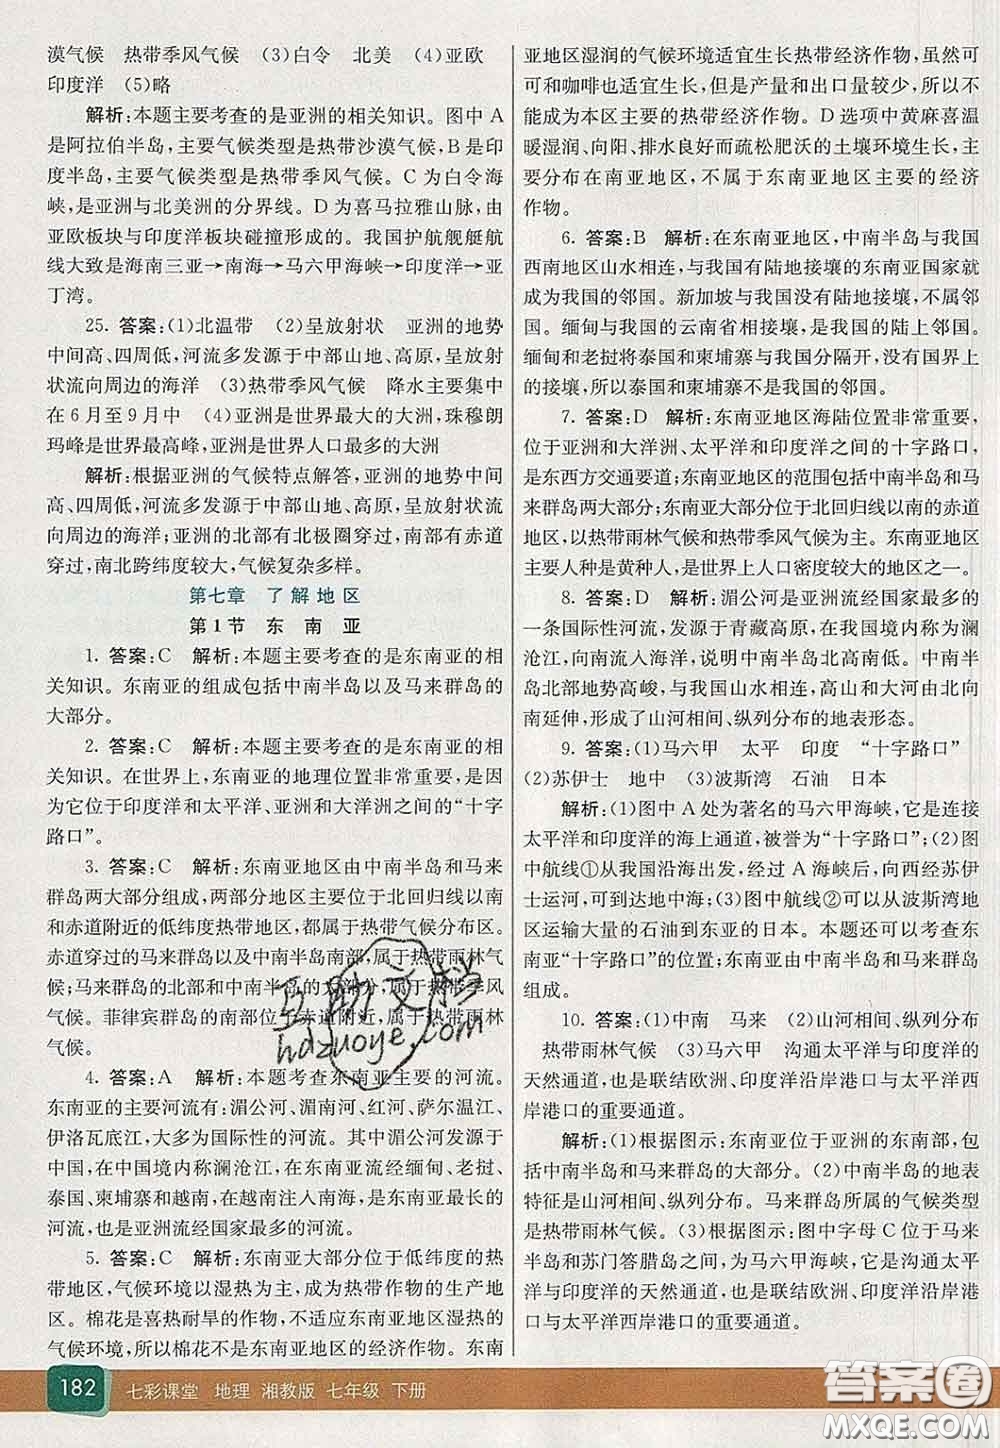 漠气候　热带季风气候　(3)白令　北美　(4)亚欧
印度洋　(5)略
解析:本题主要考查的是亚洲的相关知识。图中 A
是阿拉伯半岛，主要气候类型是热带沙漠气候，B 是印
度半岛，主要气候类型是热带季风气候。C 为白令海
峡，是亚洲与北美洲的分界线。D 为喜马拉雅山脉，由
亚欧板块与印度洋板块碰撞形成的。我国护航舰艇航
线大致是海南三亚→南海→马六甲海峡→印度洋→亚
丁湾。
25. 答案:(1)北温带　(2)呈放射状　亚洲的地势
中间高、四周低，河流多发源于中部山地、高原，呈放射
状流向周边的海洋　(3)热带季风气候　降水主要集中
在 6 月至 9 月中　(4)亚洲是世界最大的大洲，珠穆朗
玛峰是世界最高峰，亚洲是世界人口最多的大洲
解析:根据亚洲的气候特点解答，亚洲的地势中间
高、四周低，河流多发源于中部山地、高原，呈放射状流
向周边的海洋;亚洲的北部有北极圈穿过，南部有赤道
穿过，南北跨纬度较大，气候复杂多样。
第七章　了解地区
第 1 节　东　南　亚
1. 答案:C　解析:本题主要考查的是东南亚的相
关知识。东南亚的组成包括中南半岛以及马来群岛的
大部分。
2. 答案:C　解析:本题主要考查的是东南亚的相
关知识。在世界上，东南亚的地理位置非常重要，是因
为它位于印度洋和太平洋、亚洲和大洋洲之间的“十字
路口”。
3. 答案:C　解析:东南亚地区由中南半岛和马来
群岛两大部分组成，两部分地区主要位于北回归线以南
和赤道附近的低纬度热带地区，都属于热带气候分布区。
赤道附近的马来群岛以及中南半岛南部，属于热带雨林气
候;马来群岛的北部和中南半岛的大部分，属于热带季风
气候。菲律宾群岛的南部位于赤道附近，属于热带雨林
气候。
4. 答案:A　解析:本题考查东南亚主要的河流。
东南亚的主要河流有:湄公河、湄南河、红河、萨尔温江、
伊洛瓦底江，大多为国际性的河流。其中湄公河发源于
中国，在中国境内称澜沧江，在东南亚流经缅甸、老挝、
泰国、柬埔寨和越南，在越南注入南海，是东南亚最长的
河流，也是亚洲流经国家最多的河流。
5. 答案:C　解析:东南亚大部分位于低纬度的热
带地区，气候环境以湿热为主，成为热带作物的生产地
区。棉花是喜热耐旱的作物，不适应东南亚地区湿热的
气候环境，所以棉花不是东南亚地区的经济作物。东南
亚地区湿润的气候环境适宜生长热带经济作物，虽然可
可和咖啡也适宜生长，但是产量和出口量较小，所以不能
作为本区主要的热带经济作物。D 选项中黄麻喜温
暖湿润、向阳、排水良好而疏松肥沃的土壤环境生长，
主要分布在南亚地区，不属于东南亚地区主要的经济
作物。
6. 答案:B　解析:在东南亚地区，中南半岛与我国
西南地区山水相连，与我国有陆地接壤的东南亚国家就
成为我国的邻国。新加坡与我国没有陆地接壤，不属于
我国的邻国。缅甸与我国的云南省相接壤，是我国的陆上邻国。
缅甸和老挝将泰国和柬埔寨与我国分隔开，没有国界上
的接壤，所以泰国和柬埔寨不是我国的邻国。
7. 答案:D　解析:东南亚地区海陆位置非常重要，
位于亚洲和大洋洲、太平洋和印度洋之间的十字路口，
是东西方交通要道;东南亚地区的范围包括中南半岛和马
来群岛两大部分;东南亚大部分位于北回归线以南的地
区，以热带雨林气候和热带季风气候为主。东南亚地区
主要人种是黄种人，是世界上人口密度较大的地区之一。
8. 答案:D　解析:湄公河是亚洲流经国家最多的
一条国际性河流，发源于青藏高原，在我国境内称为澜
沧江，向南流去，说明中南半岛北高南低。中南
半岛北部地势高峻，与我国山水相连，高山和大河由北向
南延伸，形成了山河相间、纵列分布的地表形态。
9. 答案:(1)马六甲　太平　印度　“十字路口”
(2)苏伊士　地中　(3)波斯湾　石油　日本
解析:(1)图中 A 处为著名的马六甲海峡，它是连接
太平洋和印度洋的海上通道，被誉为“十字路口”;(2)图
中航线①从我国沿海出发，经过 A 海峡后，向西经苏伊
士运河，可到达地中海;(3)图中航线②可以从波斯湾地
区运输大量的石油到东亚的日本。本题还可以考查东
南亚“十字路口”的位置;东南亚由中南半岛和马来群岛
组成。
10. 答案:(1)中南　马来　(2)山河相间、纵列分布
热带雨林气候　(3)马六甲　沟通太平洋与印度洋的
天然通道，也是联结欧洲、印度洋沿岸港口与太平洋西
岸港口的重要通道。
解析:(1)根据图示:东南亚位于亚洲的东南部，包
括中南半岛和马来群岛的大部分。(2)中南半岛的地表
特征是山河相间、纵列分布。马来群岛所属的气候类型
是热带雨林气候。(3)根据图示:图中字母 C 位于马来
半岛和苏门答腊岛之间，为马六甲海峡，它是沟通太平
洋与印度洋的天然通道，也是联结欧洲、印度洋沿岸港口
与太平洋西岸港口的重要通道。
互助文档
hdzuoye.com
182　七彩课堂　地理　湘教版　七年级　下册
答案圈
MXQE.COM